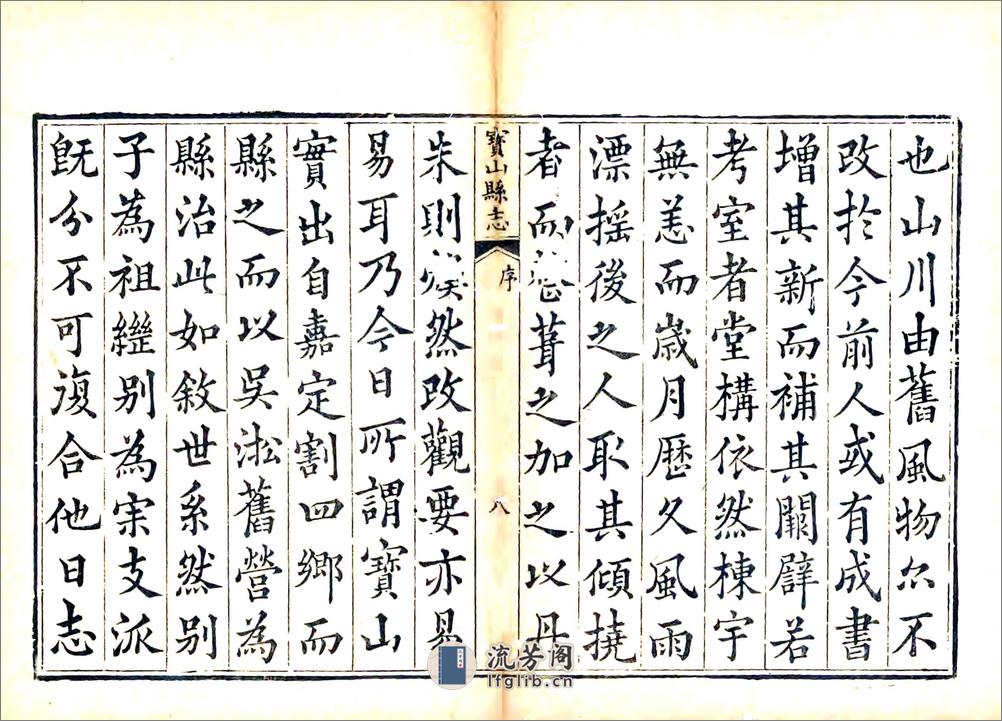 也山川由舊風物尒不
改扵今前人或有成書
增其新而補其闕辟若
考室者堂構依然棟宇
無恙而歲月歷久風雨
漂揺後之人取其傾撓
者而葺之加之以丹
寶山縣志
序
八
朱則然改觀要亦易
易耳乃今日所謂寶山
實出自嘉定割四鄉而
縣之而以吳淞舊營為
縣治此如敘世系然别
子為祖繼别為宗支派
旣分不可復合他日志
流芳阁
lfglib.cn